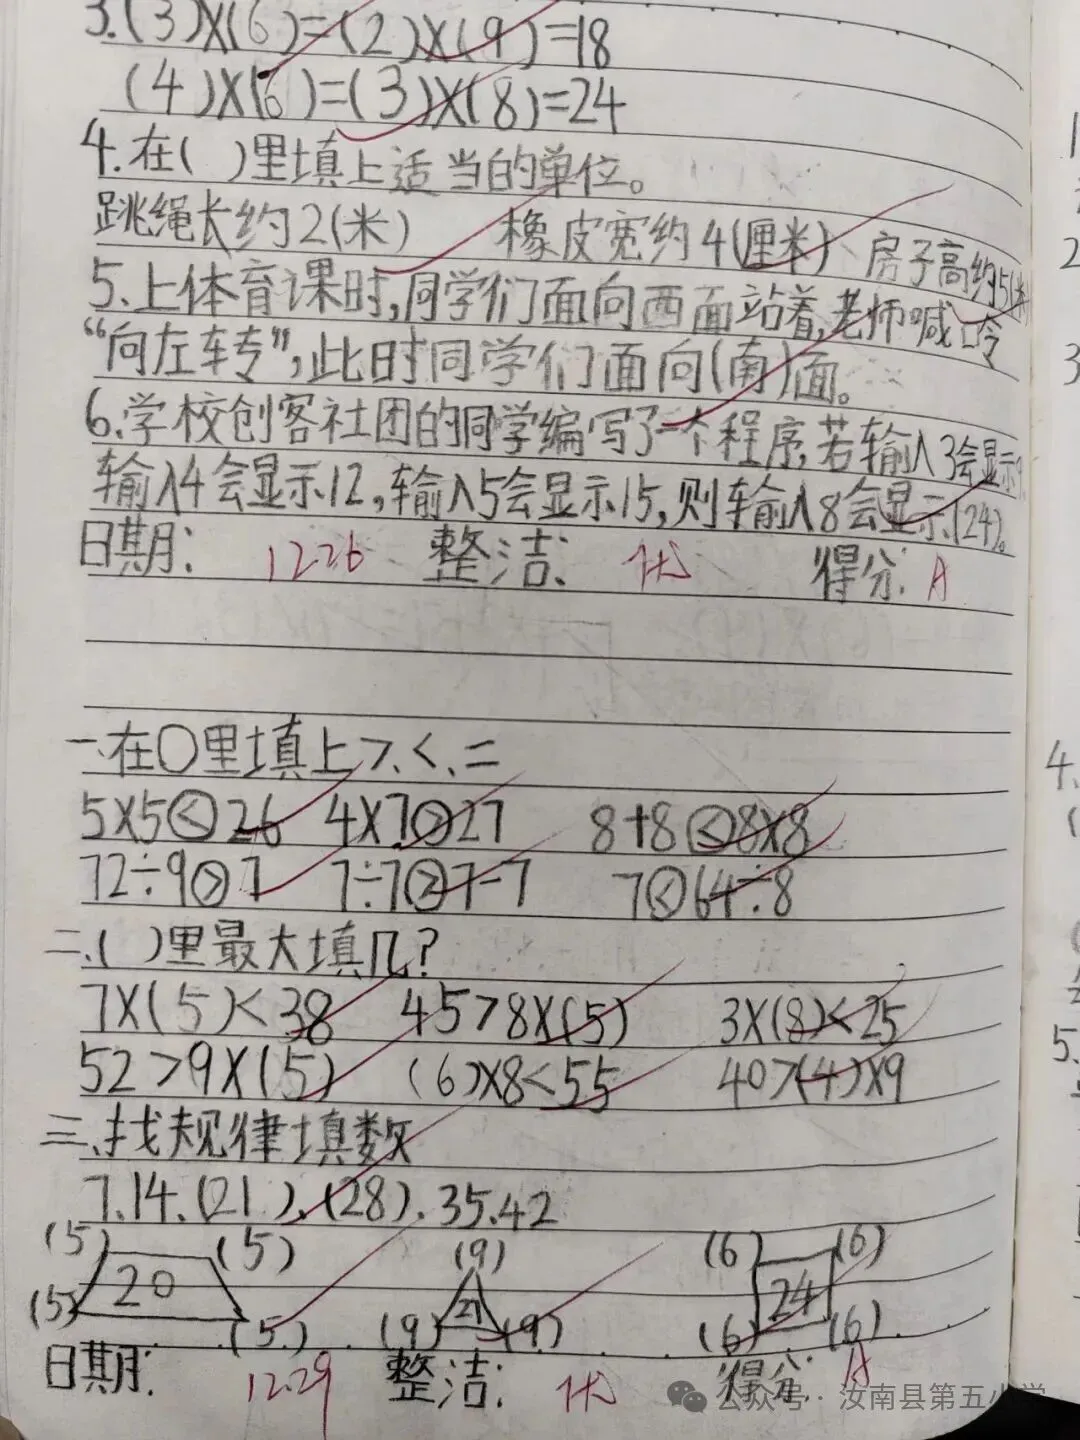 3.(3)×(6)=(2)×(9)=18
(4)×(6)=(3)×(8)=24
4.在( )里填上适当的单位。
跳绳长约2(米) 橡皮宽约4(厘米) 房子高约5(米)
5.上体育课时,同学们面向西面站着,老师喊口令
“向左转”,此时同学们面向(南)面。
6.学校创客社团的同学编写了一个程序,若输入3会显示9,
输入4会显示12,输入5会显示15,则输入8会显示(24)。
日期: 12.26 整洁: 优 得分: A
一、在○里填上>、<、=
5×5<26 4×7>27 8+8<8×8
72÷9>7 7÷7>7-7 7<64÷8
二、( )里最大填几?
7×(5)<38 45>8×(5) 3×(8)<25
52>9×(5) (6)×8<55 40>(4)×9
三、找规律填数
7.14.(21).(28).35.42
(5) (5) (9) (6) (6)
20 27 24
(5) (5) (9) (9) (6) (6)
日期: 12.29 整洁: 优 得分: A
公众号·汝南县第五小学
4.
(
5.
1
2
3